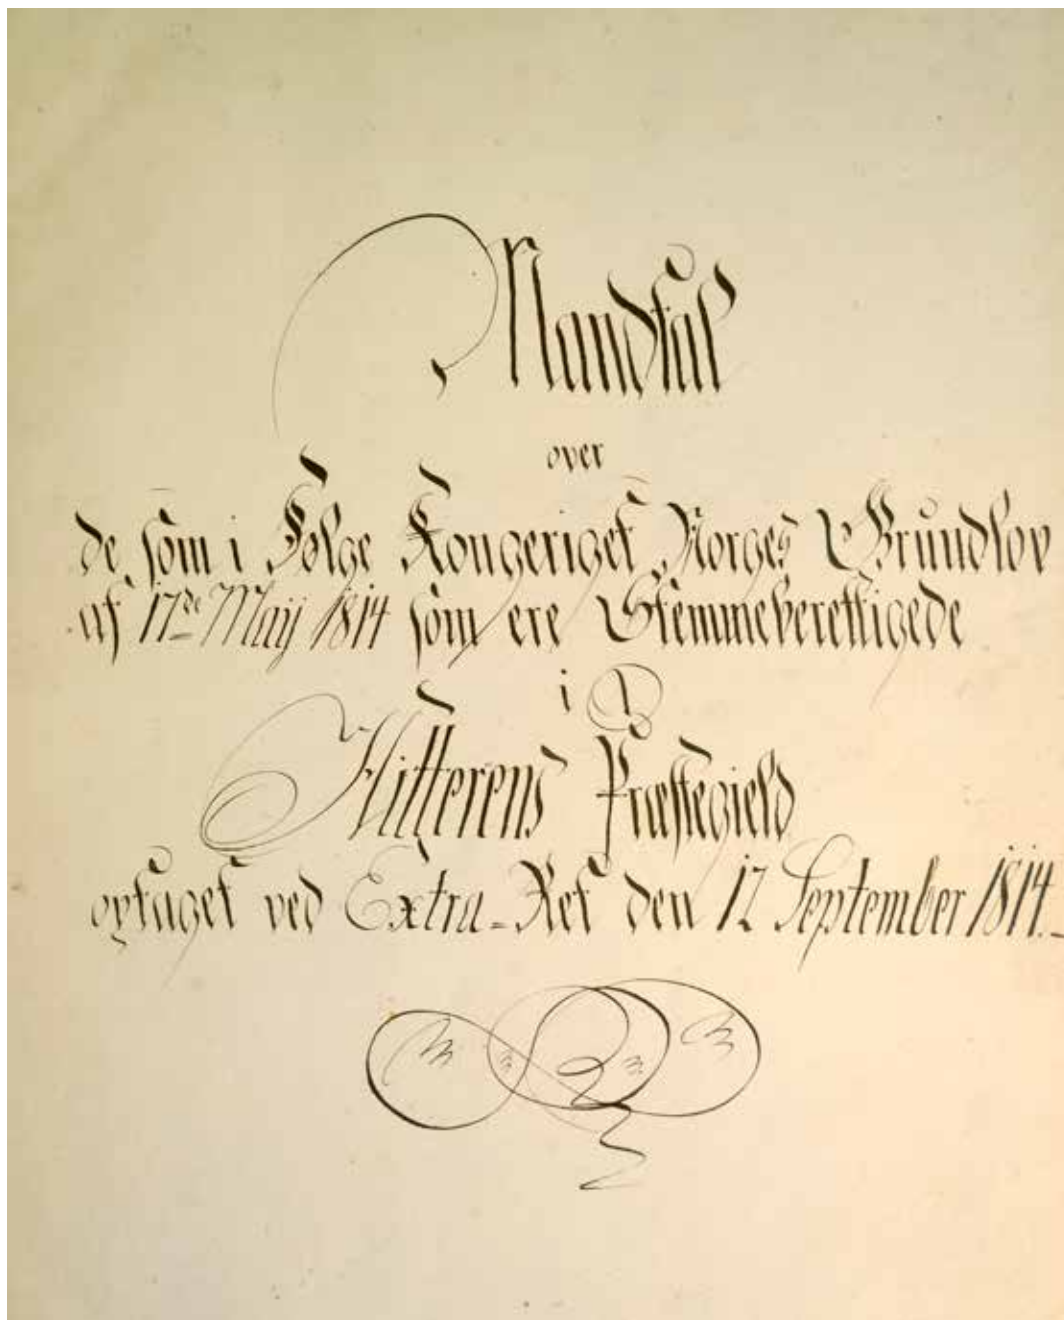 Mandtal
over
de som i Følge Kongeriget Norges Grundlov
af 17de Maij 1814 som ere Stemmeberettigede
i
Hitterens Præstegield
optaget ved Extra-Ret den 12 September 1814.